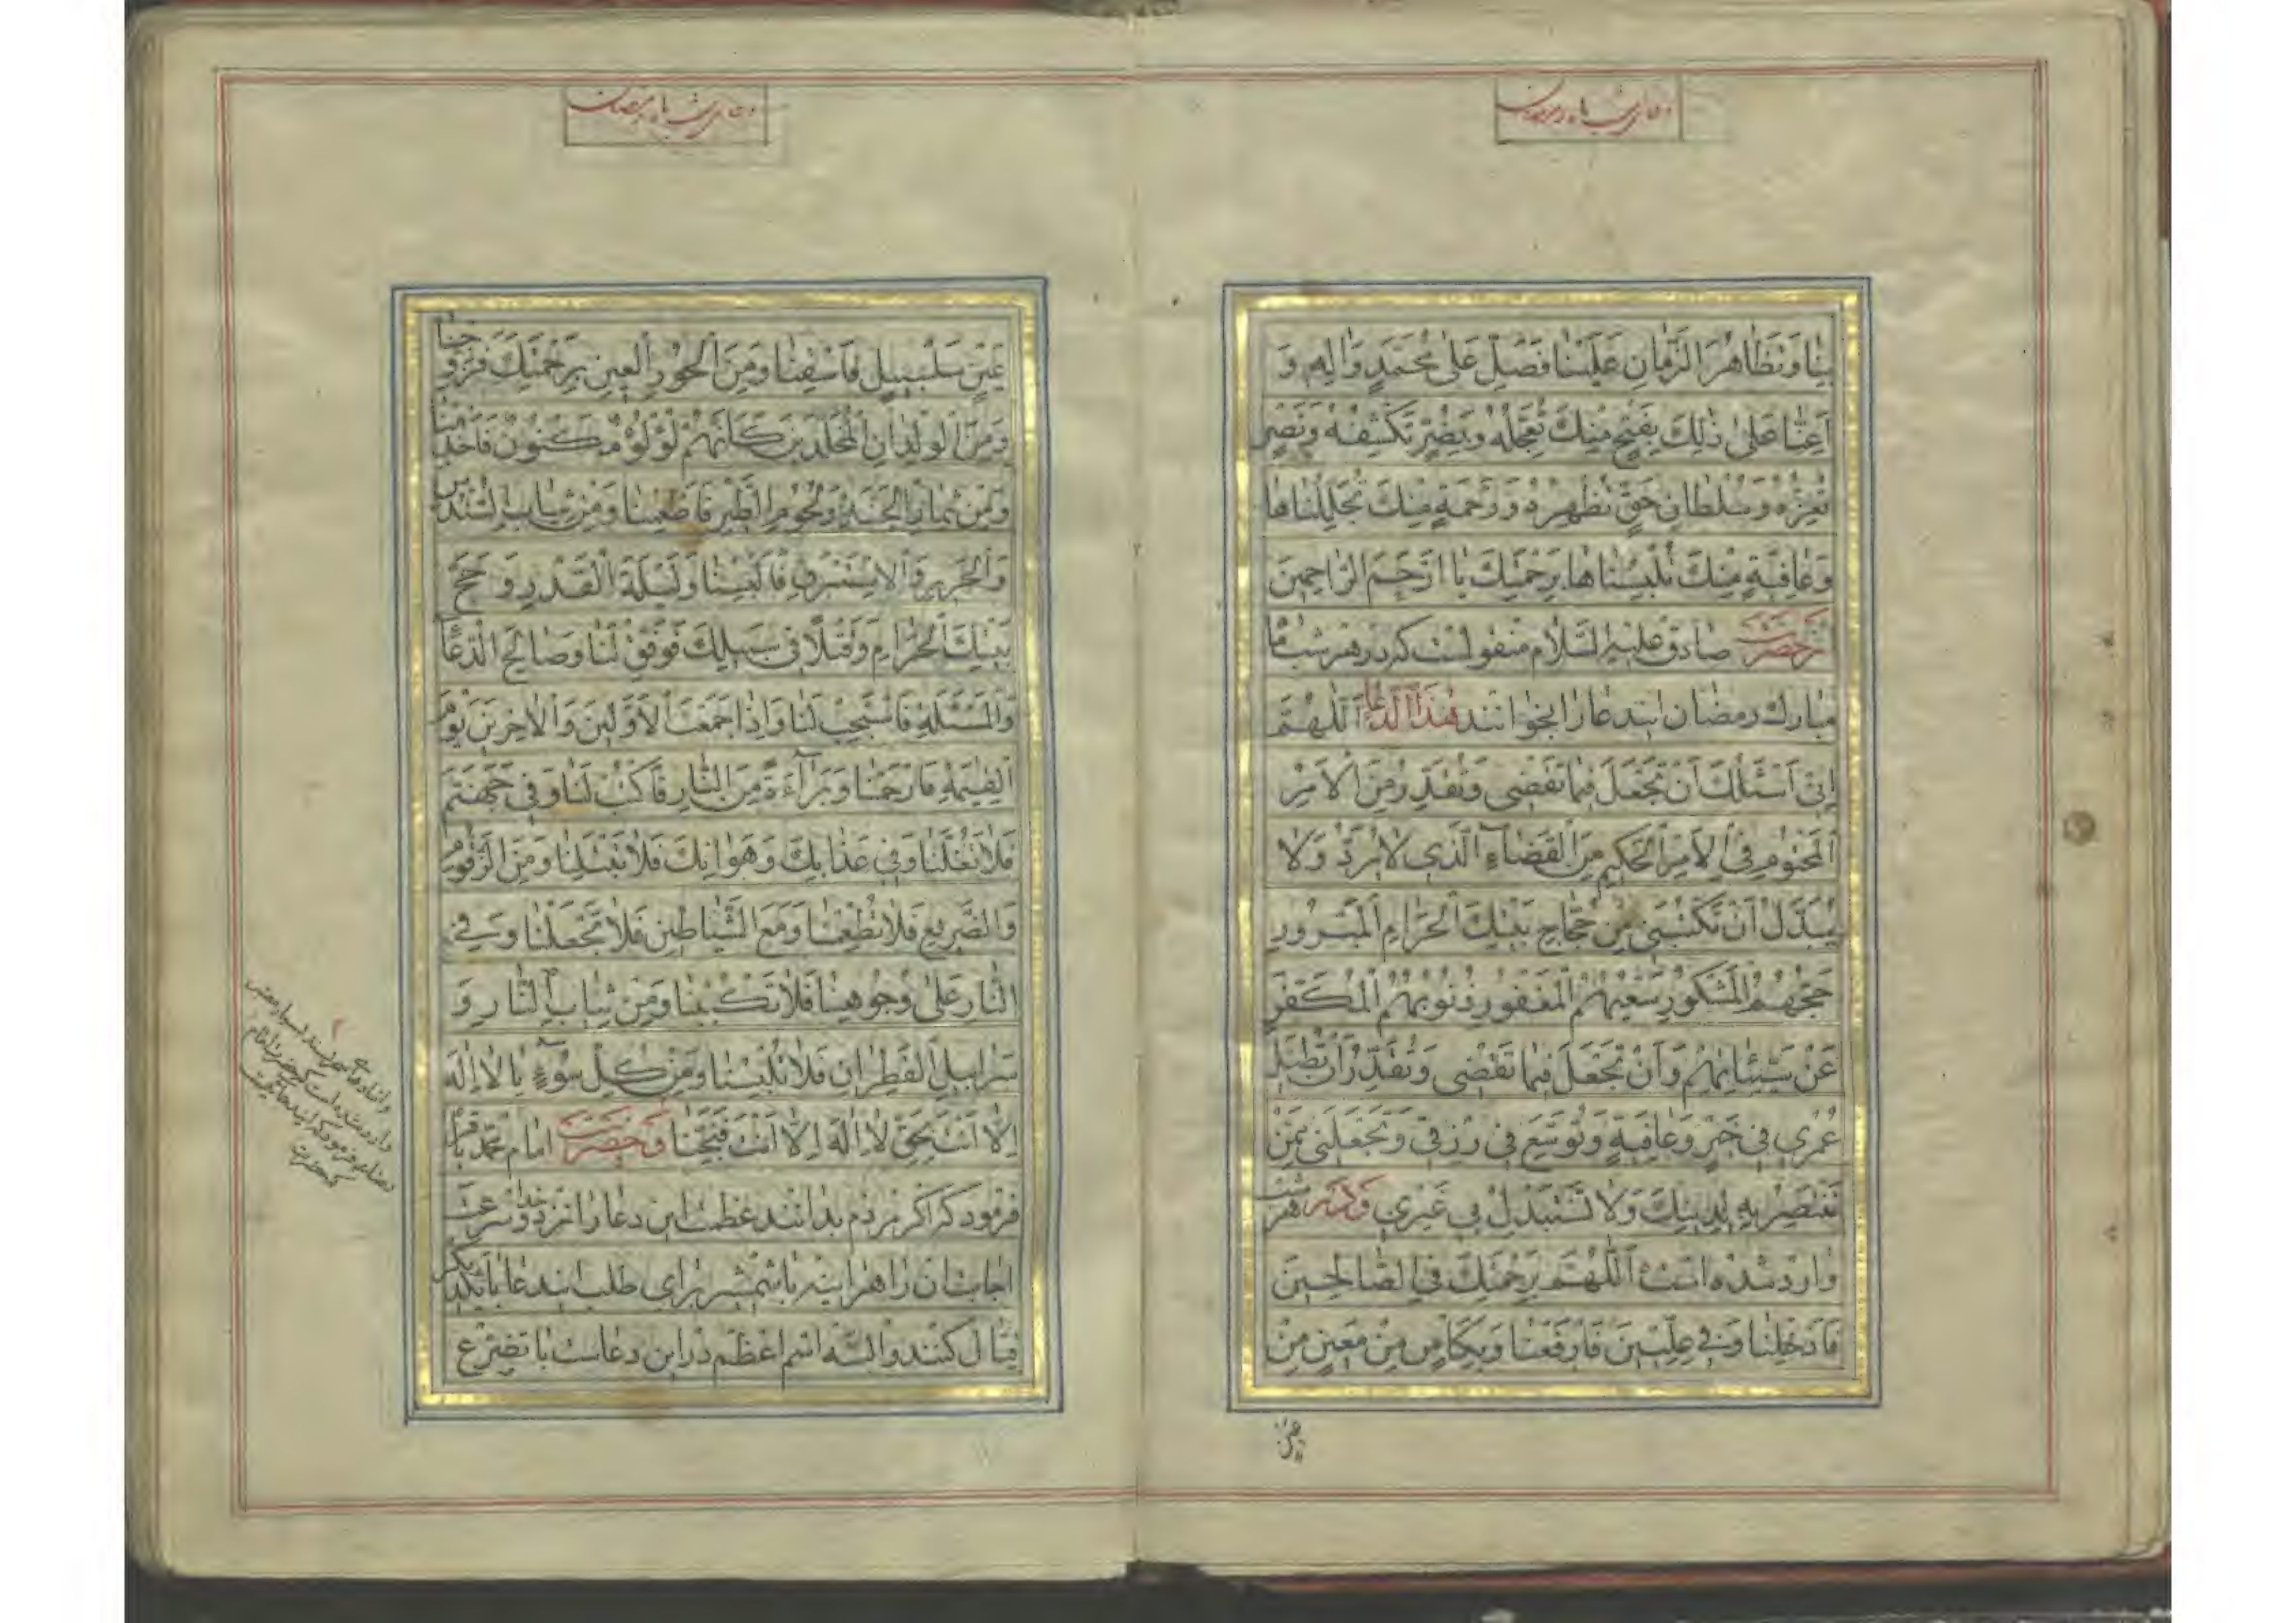 دعای شب ماه رمضان
بِنَا وَتَظَاهُرَ الزَّمَانِ عَلَيْنَا فَصَلِّ عَلَى مُحَمَّدٍ وَآلِهِ وَ
اَعِنَّا عَلَى ذٰلِكَ بِفَتْحٍ مِنْكَ تُعَجِّلُهُ وَبِضُرٍّ تَكْشِفُهُ وَنَصْرٍ
تُعِزُّهُ وَسُلْطَانِ حَقٍّ تُظْهِرُهُ وَرَحْمَةٍ مِنْكَ تُجَلِّلُنَاهَا
وَعَافِيَةٍ مِنْكَ تُلْبِسُنَاهَا بِرَحْمَتِكَ يَا اَرْحَمَ الرَّاحِمِينَ
از حضرت صادق عليه السلام منقولست كه در هر شب ماه
مبارك رمضان ايندعا را بخوانند هذا الدعا اَللّٰهُمَّ
اِنِّي اَسْئَلُكَ اَنْ تَجْعَلَ فِيمَا تَقْضِي وَتُقَدِّرُ مِنَ الْاَمْرِ
الْمَحْتُومِ فِي الْاَمْرِ الْحَكِيمِ مِنَ الْقَضَاءِ الَّذِي لَا يُرَدُّ وَلَا
يُبَدَّلُ اَنْ تَكْتُبَنِي مِنْ حُجَّاجِ بَيْتِكَ الْحَرَامِ الْمَبْرُورِ
حَجُّهُمُ الْمَشْكُورِ سَعْيُهُمُ الْمَغْفُورِ ذُنُوبُهُمُ الْمُكَفَّرِ
عَنْ سَيِّئَاتِهِمْ وَاَنْ تَجْعَلَ فِيمَا تَقْضِي وَتُقَدِّرُ اَنْ تُطِيلَ
عُمْرِي فِي خَيْرٍ وَعَافِيَةٍ وَتُوَسِّعَ فِي رِزْقِي وَتَجْعَلَنِي مِمَّنْ
تَنْتَصِرُ بِهِ لِدِينِكَ وَلَا تَسْتَبْدِلْ بِي غَيْرِي و در هر شب
وارد شده است اَللّٰهُمَّ بِرَحْمَتِكَ فِي الصَّالِحِينَ
فَاَدْخِلْنَا وَفِي عِلِّيِّينَ فَارْفَعْنَا وَبِكَأْسٍ مِنْ مَعِينٍ مِنْ
دعای شب ماه رمضان
عَيْنٍ سَلْسَبِيلٍ فَاسْقِنَا وَمِنَ الْحُورِ الْعِينِ بِرَحْمَتِكَ فَزَوِّجْنَا
وَمِنَ الْوِلْدَانِ الْمُخَلَّدِينَ كَاَنَّهُمْ لُؤْلُؤٌ مَكْنُونٌ فَاَخْدِمْنَا
وَمِنْ ثِمَارِ الْجَنَّةِ وَلُحُومِ الطَّيْرِ فَاَطْعِمْنَا وَمِنْ ثِيَابِ السُّنْدُسِ
وَالْحَرِيرِ وَالْاِسْتَبْرَقِ فَاَلْبِسْنَا وَلَيْلَةَ الْقَدْرِ وَ حَجَّ
بَيْتِكَ الْحَرَامِ وَقَتْلًا فِي سَبِيلِكَ فَوَفِّقْ لَنَا وَصَالِحَ الدُّعَاءِ
وَالْمَسْئَلَةِ فَاسْتَجِبْ لَنَا وَاِذَا جَمَعْتَ الْاَوَّلِينَ وَالْاٰخِرِينَ يَوْمَ
الْقِيٰمَةِ فَارْحَمْنَا وَبَرَاءَةً مِنَ النَّارِ فَاكْتُبْ لَنَا وَفِي جَهَنَّمَ
فَلَا تَغُلَّنَا وَفِي عَذَابِكَ وَهَوَانِكَ فَلَا تَبْتَلِنَا وَمِنَ الزَّقُّومِ
وَالضَّرِيعِ فَلَا تُطْعِمْنَا وَمَعَ الشَّيَاطِينِ فَلَا تَجْعَلْنَا وَفِي
النَّارِ عَلَى وُجُوهِنَا فَلَا تَكْبُبْنَا وَمِنْ ثِيَابِ النَّارِ وَ
سَرَابِيلِ الْقَطِرَانِ فَلَا تُلْبِسْنَا وَمِنْ كُلِّ سُوءٍ يَا لَا اِلٰهَ
اِلَّا اَنْتَ بِحَقِّ لَا اِلٰهَ اِلَّا اَنْتَ فَنَجِّنَا و حضرت امام محمد باقر
فرمود كه اگر مردم بدانند عظمت اين دعا را نزد خدا و سرعت
اجابت آن را هر اينه با شمشير براى طلب ايندعا با يكديگر
قتال كنند و الله اسم اعظم در اين دعاست با تضرع